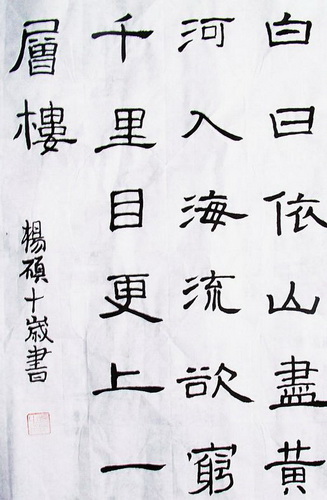 白日依山盡黃
河入海流欲窮
千里目更上一
層樓
楊碩十歲書